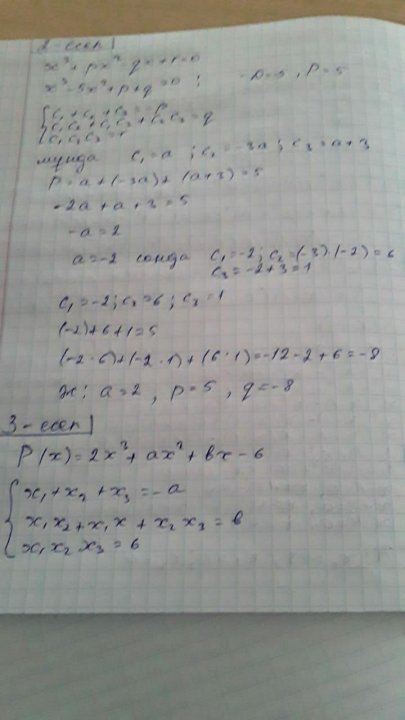 2-есеп
x³ + px² qx + r = 0
x³ - 5x² + p + q = 0 ; p = 5
c₁ + c₂ + c₃ = -p
c₁c₂ + c₁c₃ + c₂c₃ = q
c₁c₂c₃ = r
мұнда c₁ = a ; c₂ = -3a ; c₃ = a + 3
p = a + (-3a) + (a + 3) = 5
-2a + a + 3 = 5
-a = 2
a = -2 сонда c₁ = -2 ; c₂ = (-3)·(-2) = 6
c₃ = -2 + 3 = 1
c₁ = -2 ; c₂ = 6 ; c₃ = 1
(-2) + 6 + 1 = 5
(-2·6) + (-2·1) + (6·1) = -12 - 2 + 6 = -8
Ж: a = 2 , p = 5 , q = -8
3-есеп
P(x) = 2x³ + ax² + bx - 6
x₁ + x₂ + x₃ = -a
x₁x₂ + x₁x + x₂x₃ = b
x₁x₂x₃ = 6